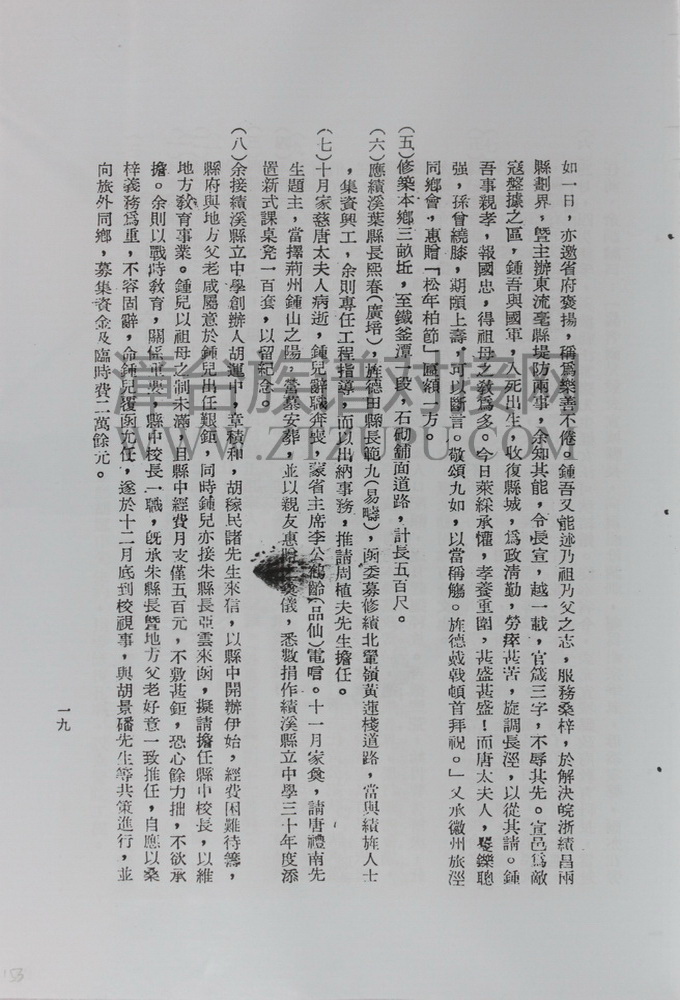 如一日，亦邀省府褒揚，稱為樂善不倦。鍾吾又能述乃祖乃父之志，服務桑梓，於解決皖浙績昌兩
縣劃界，暨主辦東流亳縣堤防兩事，余知其能，令長宣，越一載，官箴三字，不辱其先。宣邑為敵
寇盤據之區，鍾吾與國軍，入死出生，收復縣城，為政清勤，勞瘁甚苦，旋調長涇，以從其請。鍾
吾事親孝，報國忠，得祖母之教為多。今日萊綵承懽，孝養重闈，甚盛甚盛！而唐太夫人，矍鑠聰
強，孫曾繞膝，期頤上壽，可以斷言。敬頌九如，以當稱觴。旌德戴戟頓首拜祝。」又承徽州旅涇
同鄉會，惠贈「松年柏節」匾額一方。
（五）修築本鄉三畝坵，至鐵釜潭一段，石砌舖面道路，計長五百尺。
（六）應績溪葉縣長熙春（廣培），旌德田縣長範九（易疇），函委募修績北翬嶺黃蓮棧道路，當與績旌人士
，集資興工，余則專任工程指導，而以出納事務，推請周植夫先生擔任。
（七）十月家慈唐太夫人病逝，鍾兒辭職奔喪，蒙省主席李公鶴齡（品仙）電唁。十一月家奠，請唐禮南先
生題主，當擇荊州鍾山之陽，營墓安葬，並以親友惠賻奠儀，悉數捐作績溪縣立中學三十年度添
置新式課桌凳一百套，以留紀念。
（八）余接績溪縣立中學創辦人胡運中，章積和，胡稼民諸先生來信，以縣中開辦伊始，經費困難待籌，
縣府與地方父老咸屬意於鍾兒出任艱鉅，同時鍾兒亦接朱縣長亞雲來函，擬請擔任縣中校長，以維
地方教育事業。鍾兒以祖母之制未滿，且縣中經費月支僅五百元，不敷甚鉅，恐心餘力拙，不欲承
擔。余則以戰時教育，關係重要，縣中校長一職，既承朱縣長暨地方父老好意一致推任，自應以桑
梓義務為重，不容固辭，命鍾兒覆函允任，遂於十二月底到校視事，與胡景磻先生等共策進行，並
向旅外同鄉，募集資金及臨時費二萬餘元。
一九
153
章台族谱对接网
WWW.ZTZUPU.COM